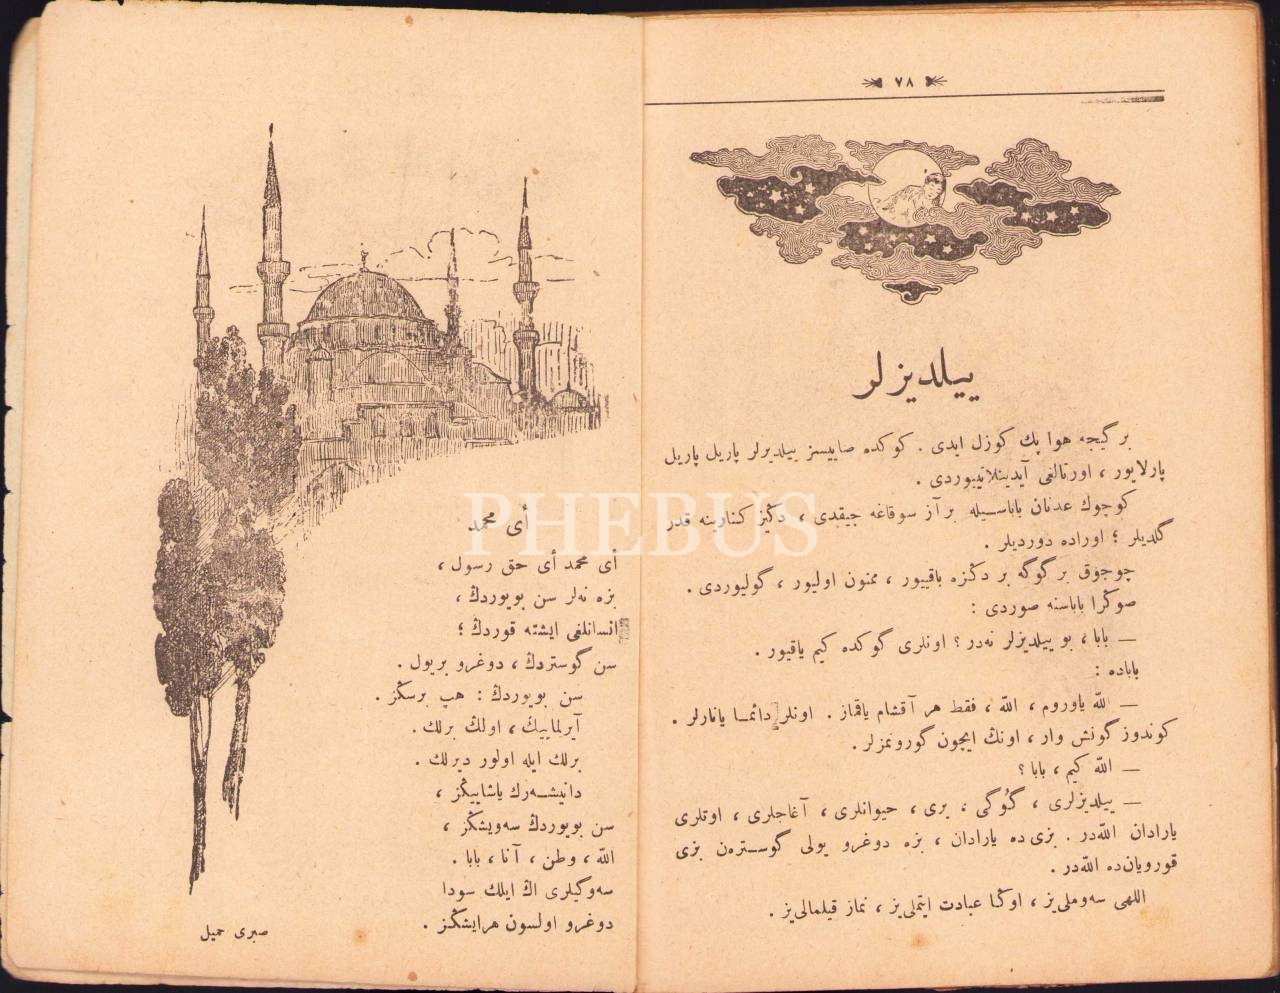 ٧٨
ييلديزلر
بر گيجه هوا پك كوزل ايدى . كوكده صاييسز ييلديزلر پاريل پاريل
پارلايور ، اورتالغى آيدينلاتييوردى .
كوچوك عدنان باباسيله بر آز سوقاغه چيقدى ، دڭيز كنارينه قدر
گلديلر ؛ اوراده دورديلر .
چوجوق بر گوگه بر دڭزه باقييور ، ممنون اوليور ، گوليوردى .
صوڭرا باباسنه صوردى :
— بابا ، بو ييلديزلر نه‌در ؟ اونلرى گوكده كيم ياقيور .
باباده :
— الله ياوروم ، الله ، فقط هر آقشام ياقماز . اونلر دائما يانارلر .
كوندوز گونش وار ، اونك ايچون گورونمزلر .
— الله كيم ، بابا ؟
— ييلديزلرى ، گوگى ، يرى ، حيوانلرى ، آغاجلرى ، اوتلرى
يارادان الله‌در . بزى ده يارادان ، بزه دوغرو يولى گوسترەن بزى
قورويان‌ده الله‌در .
اللهى سه‌وملى‌يز ، اوڭا عبادت ايتملى‌يز ، نماز قيلمالى‌يز .
أى محمد
أى محمد أى حق رسول ،
بزه نه‌لر سن بويوردڭ ،
انسانلغى ايشته قوردڭ ؛
سن گوستردڭ ، دوغرو بريول .
سن بويوردڭ : هپ برسڭز .
آيرلماييڭ ، اولڭ برلك .
برلك ايله اولور ديرلك .
دانيشه‌رك ياشاييڭز ،
سن بويوردڭ سه‌ويشڭز ،
الله ، وطن ، آنا ، بابا .
سه‌وگيلرى اڭ ايلك سودا
دوغرو اولسون هرايشڭز .
صبرى جميل
PHEBUS